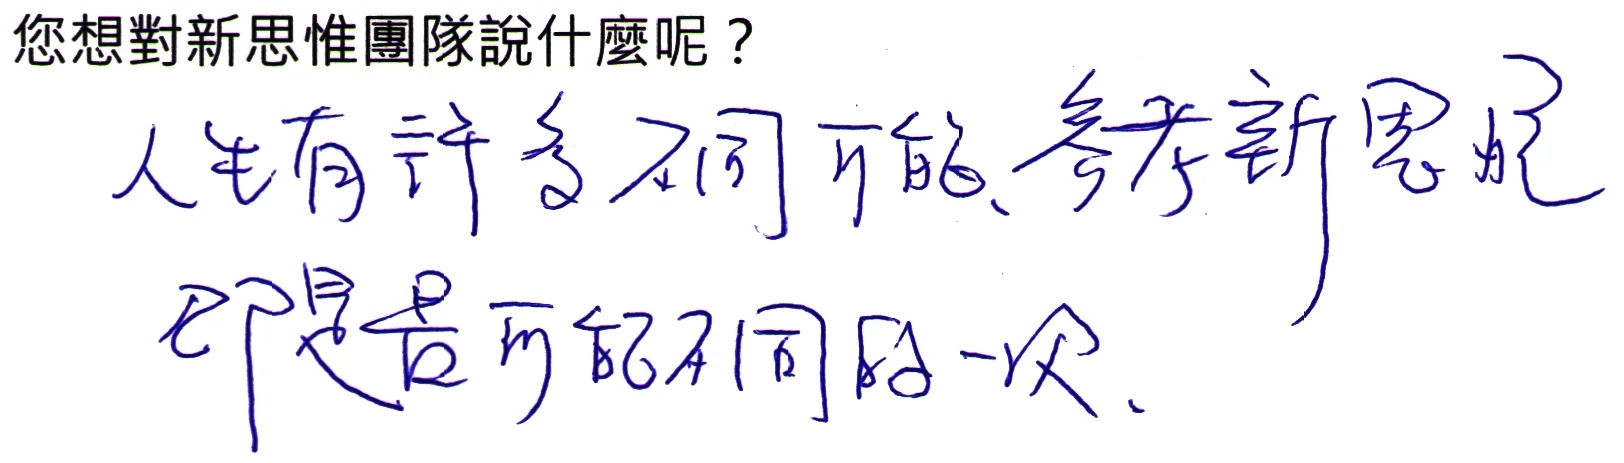 您想對新思惟團隊說什麼呢？
人生有許多不同可能、參考新思惟
即是可能不同的一次、